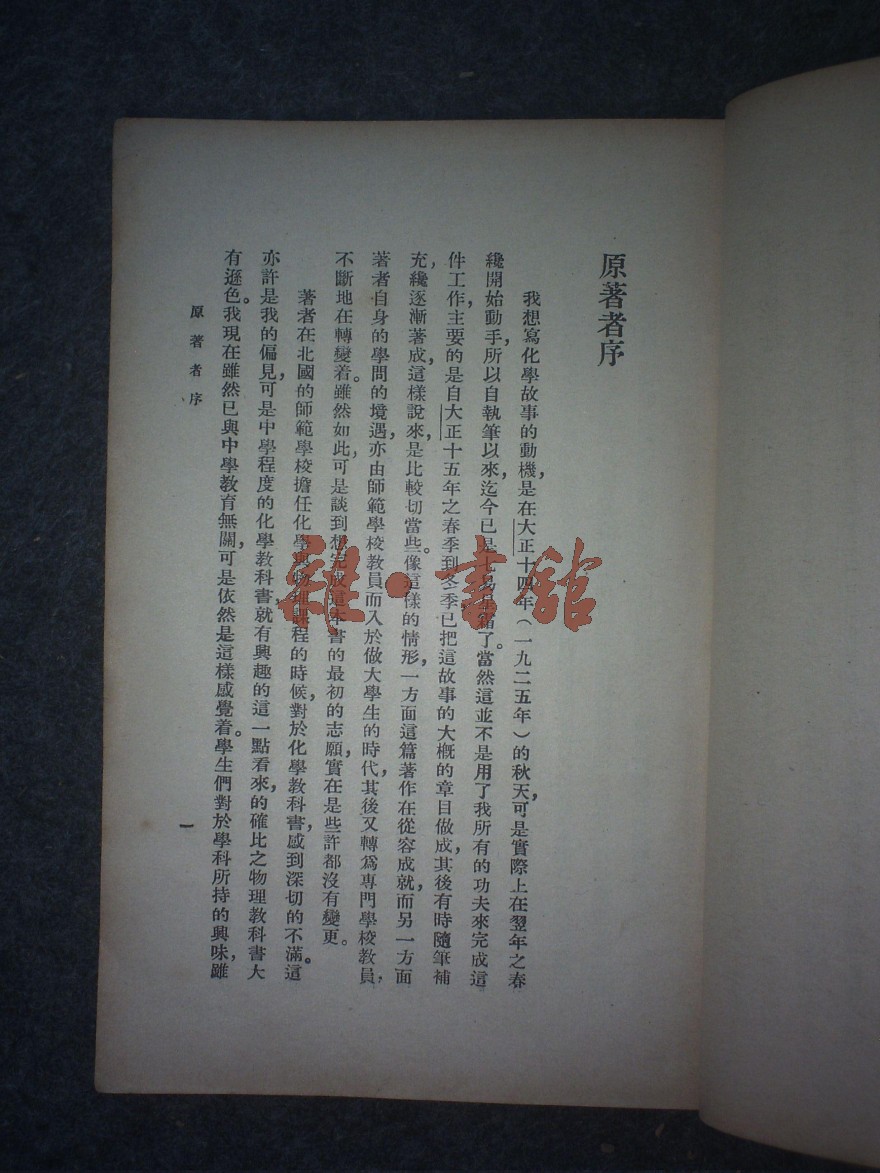 原著者序
我想寫化學故事的動機，是在大正十四年（一九二五年）的秋天，可是實際上在翌年之春
纔開始動手，所以自執筆以來，迄今已是七易星霜了。當然這並不是用了我所有的功夫來完成這
件工作，主要的是自大正十五年之春季到冬季已把這故事的大概的章目做成，其後有時隨筆補
充，纔逐漸著成，這樣說來，是比較切當些。像這樣的情形，一方面這篇著作在從容成就，而另一方面
著者自身的學問的境遇，亦由師範學校教員而入於做大學生的時代，其後又轉爲專門學校教員，
不斷地在轉變着。雖然如此，可是談到想完成這本書的最初的志願，實在是些許都沒有變更。
著者在北國的師範學校擔任化學與物理課程的時候，對於化學教科書，感到深切的不滿。這
亦許是我的偏見，可是中學程度的化學教科書，就有興趣的這一點看來，的確比之物理教科書大
有遜色。我現在雖然已與中學教育無關，可是依然是這樣感覺着。學生們對於學科所持的興味，雖
原著者序
一
雜·書館